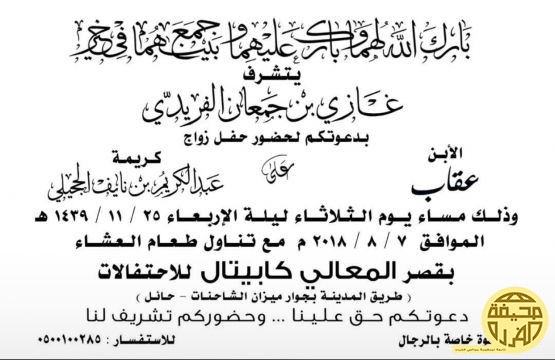 بارك الله لهما وبارك عليهما وجمع بينهما في خير
يتشرف
غازي بن جمعان الفريدي
بدعوتكم لحضور حفل زواج
الأبن
عقاب
على
كريمة
عبدالكريم بن نايف الجحيلي
وذلك مساء يوم الثلاثاء ليلة الإربعاء ٢٥ / ١١ / ١٤٣٩ هـ
الموافق ٧ / ٨ / ٢٠١٨ م مع تناول طعام العشاء
بقصر المعالي كابيتال للاحتفالات
( طريق المدينة بجوار ميزان الشاحنات - حائل )
دعوتكم حق علينا ... وحضوركم تشريف لنا
للاستفسار : ٠٥٠٠١٠٠٢٨٥
وة خاصة بالرجال
صحيفة
العرب